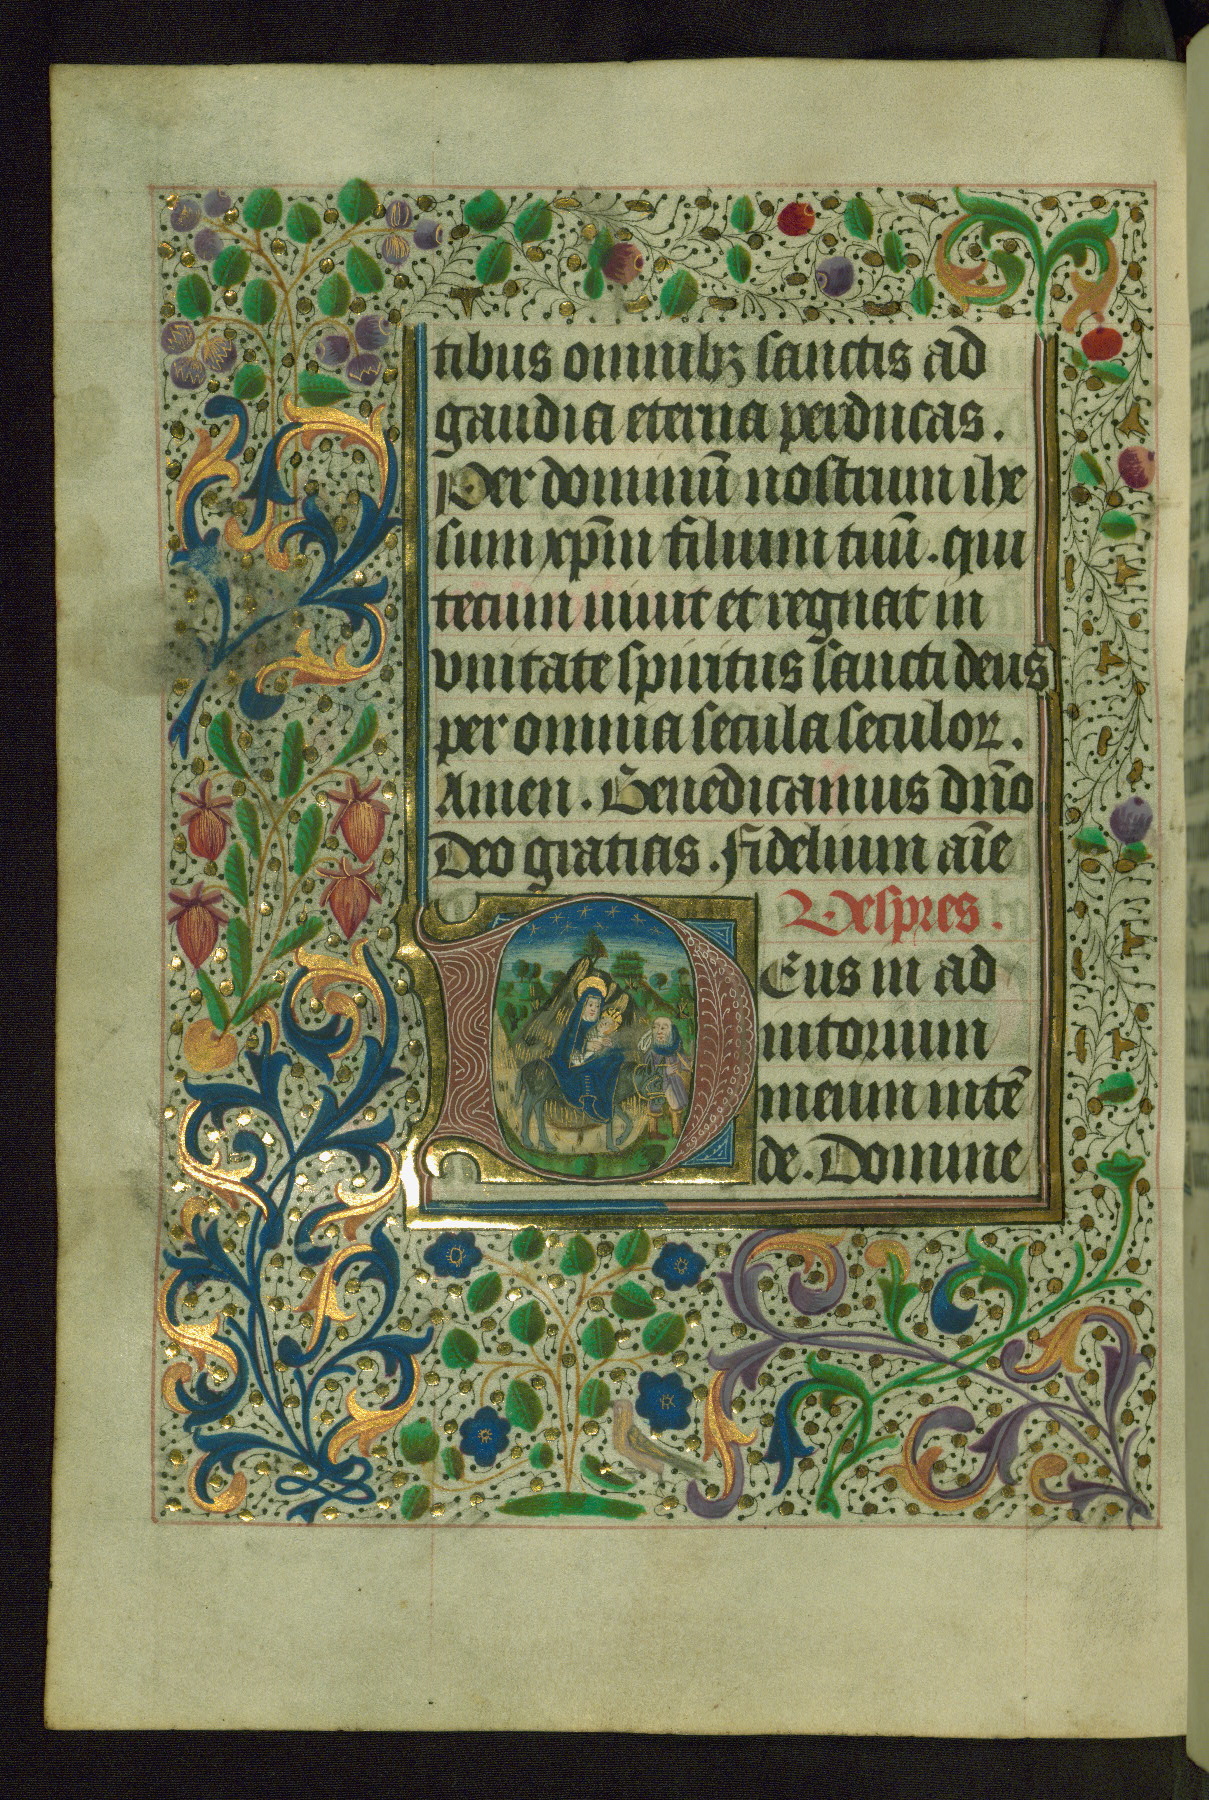 tibus omnibꝫ sanctis ad
gaudia eterna perducas.
Per dominū nostrum ihe
sum xp̄m filium tuū. qui
tecum uiuit et regnat in
vnitate spiritus sancti deus
per omnia secula seculoꝝ.
Amen. Benedicamus dn̄o
Deo gratias. Fidelium aīe
Vespres.
DEus in ad
iutorium
meum intē
de. Domine